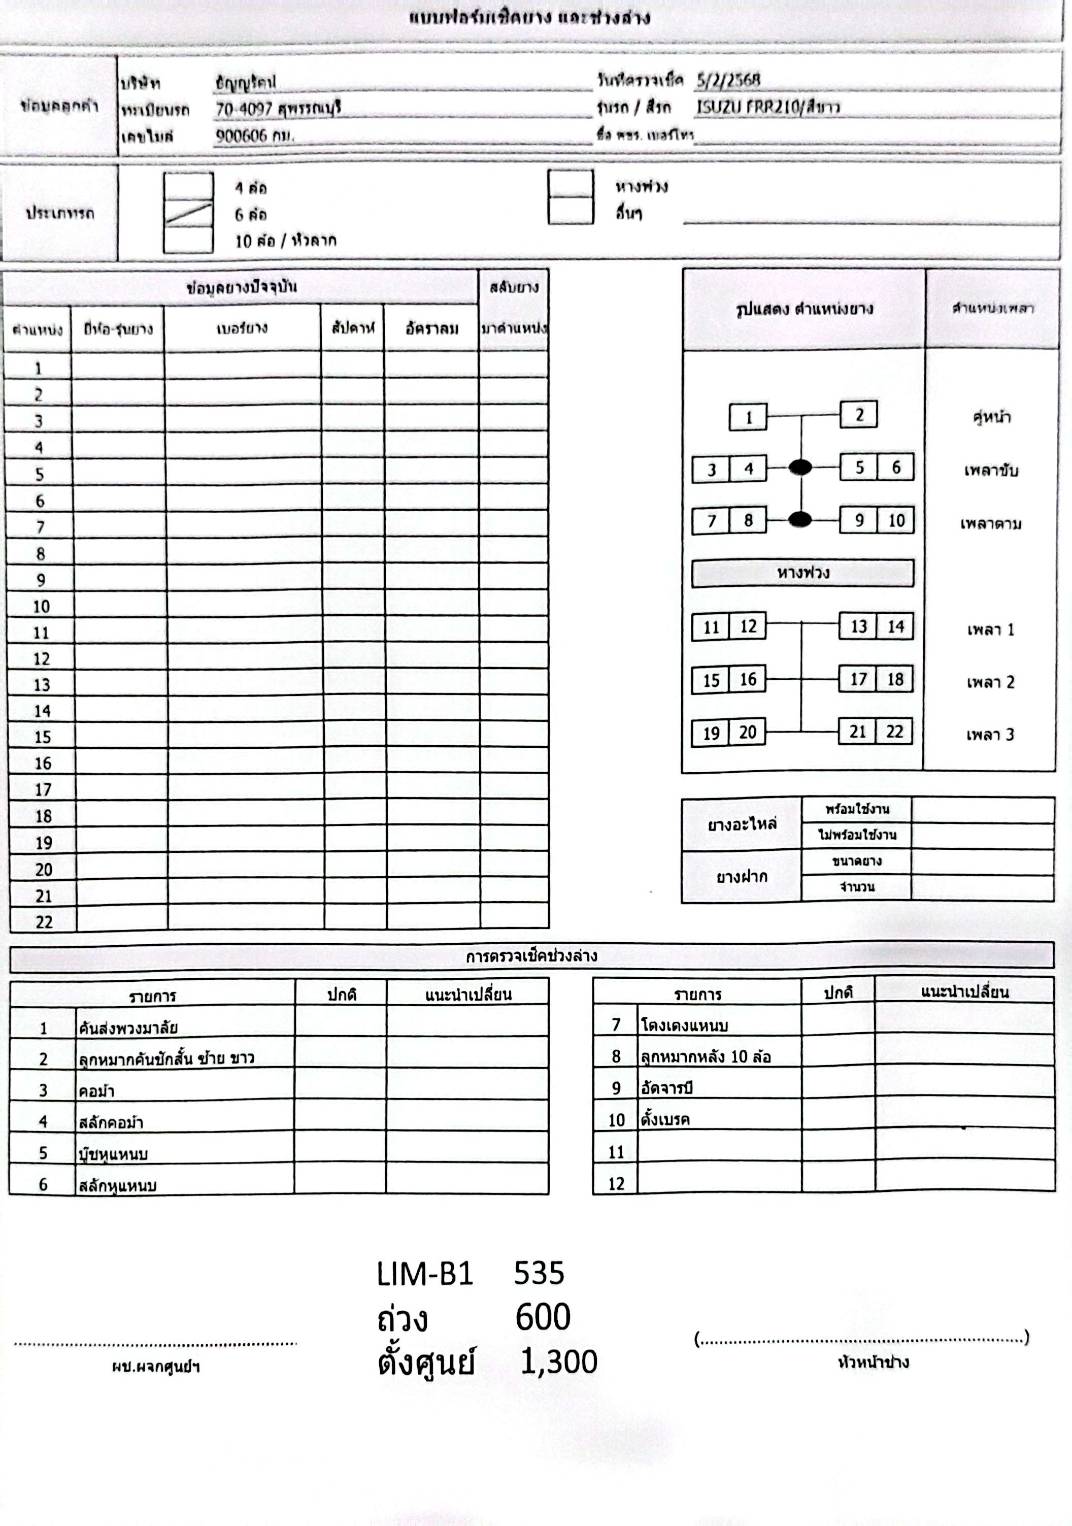 แบบฟอร์มเช็คยาง และช่วงล่าง
ข้อมูลลูกค้า
บริษัท ธัญญรัตน์ วันที่ตรวจเช็ค 5/2/2568
ทะเบียนรถ 70-4097 สุพรรณบุรี รุ่นรถ / สีรถ ISUZU FRR210/สีขาว
เลขไมล์ 900606 กม. ชื่อ พขร. เบอร์โทร
ประเภทรถ
4 ล้อ หางพ่วง
6 ล้อ อื่นๆ
10 ล้อ / หัวลาก
ข้อมูลยางปัจจุบัน สลับยาง
ตำแหน่ง ยี่ห้อ-รุ่นยาง เบอร์ยาง สัปดาห์ อัตราลม มาตำแหน่ง
1
2
3
4
5
6
7
8
9
10
11
12
13
14
15
16
17
18
19
20
21
22
รูปแสดง ตำแหน่งยาง ตำแหน่งเพลา
1 2 คู่หน้า
3 4 5 6 เพลาขับ
7 8 9 10 เพลาตาม
หางพ่วง
11 12 13 14 เพลา 1
15 16 17 18 เพลา 2
19 20 21 22 เพลา 3
ยางอะไหล่ พร้อมใช้งาน
ไม่พร้อมใช้งาน
ยางฝาก ขนาดยาง
จำนวน
การตรวจเช็คช่วงล่าง
รายการ ปกติ แนะนำเปลี่ยน
1 คันส่งพวงมาลัย
2 ลูกหมากคันชักสั้น ซ้าย ขาว
3 คอม้า
4 สลักคอม้า
5 บู๊ชหูแหนบ
6 สลักหูแหนบ
รายการ ปกติ แนะนำเปลี่ยน
7 โตงเตงแหนบ
8 ลูกหมากหลัง 10 ล้อ
9 อัดจารบี
10 ตั้งเบรค
11
12
LIM-B1 535
ถ่วง 600
ตั้งศูนย์ 1,300
ผช.ผจกศูนย์ฯ
(..........)
หัวหน้าช่าง